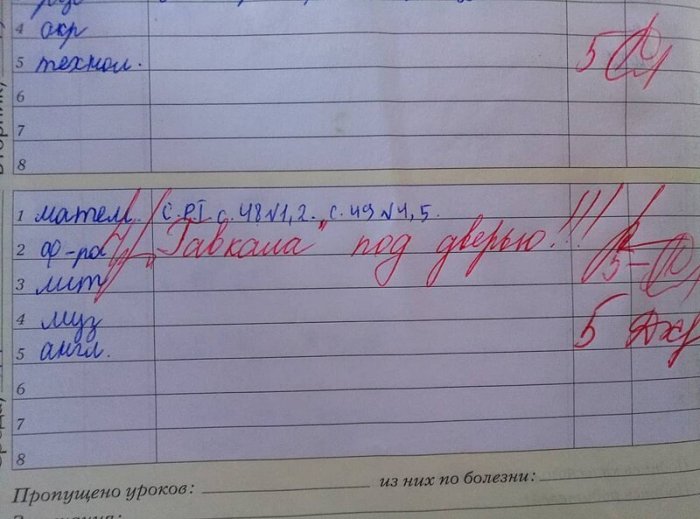 4 окр
5 технол.
5
6
7
8
1 матем. с. РТ с. 48 №1, 2. с. 49 №4, 5.
2 ф-ра "Гавкала" под дверью!!!
5-
3 лит
4 муз
5
5 англ.
6
7
8
Пропущено уроков: из них по болезни: